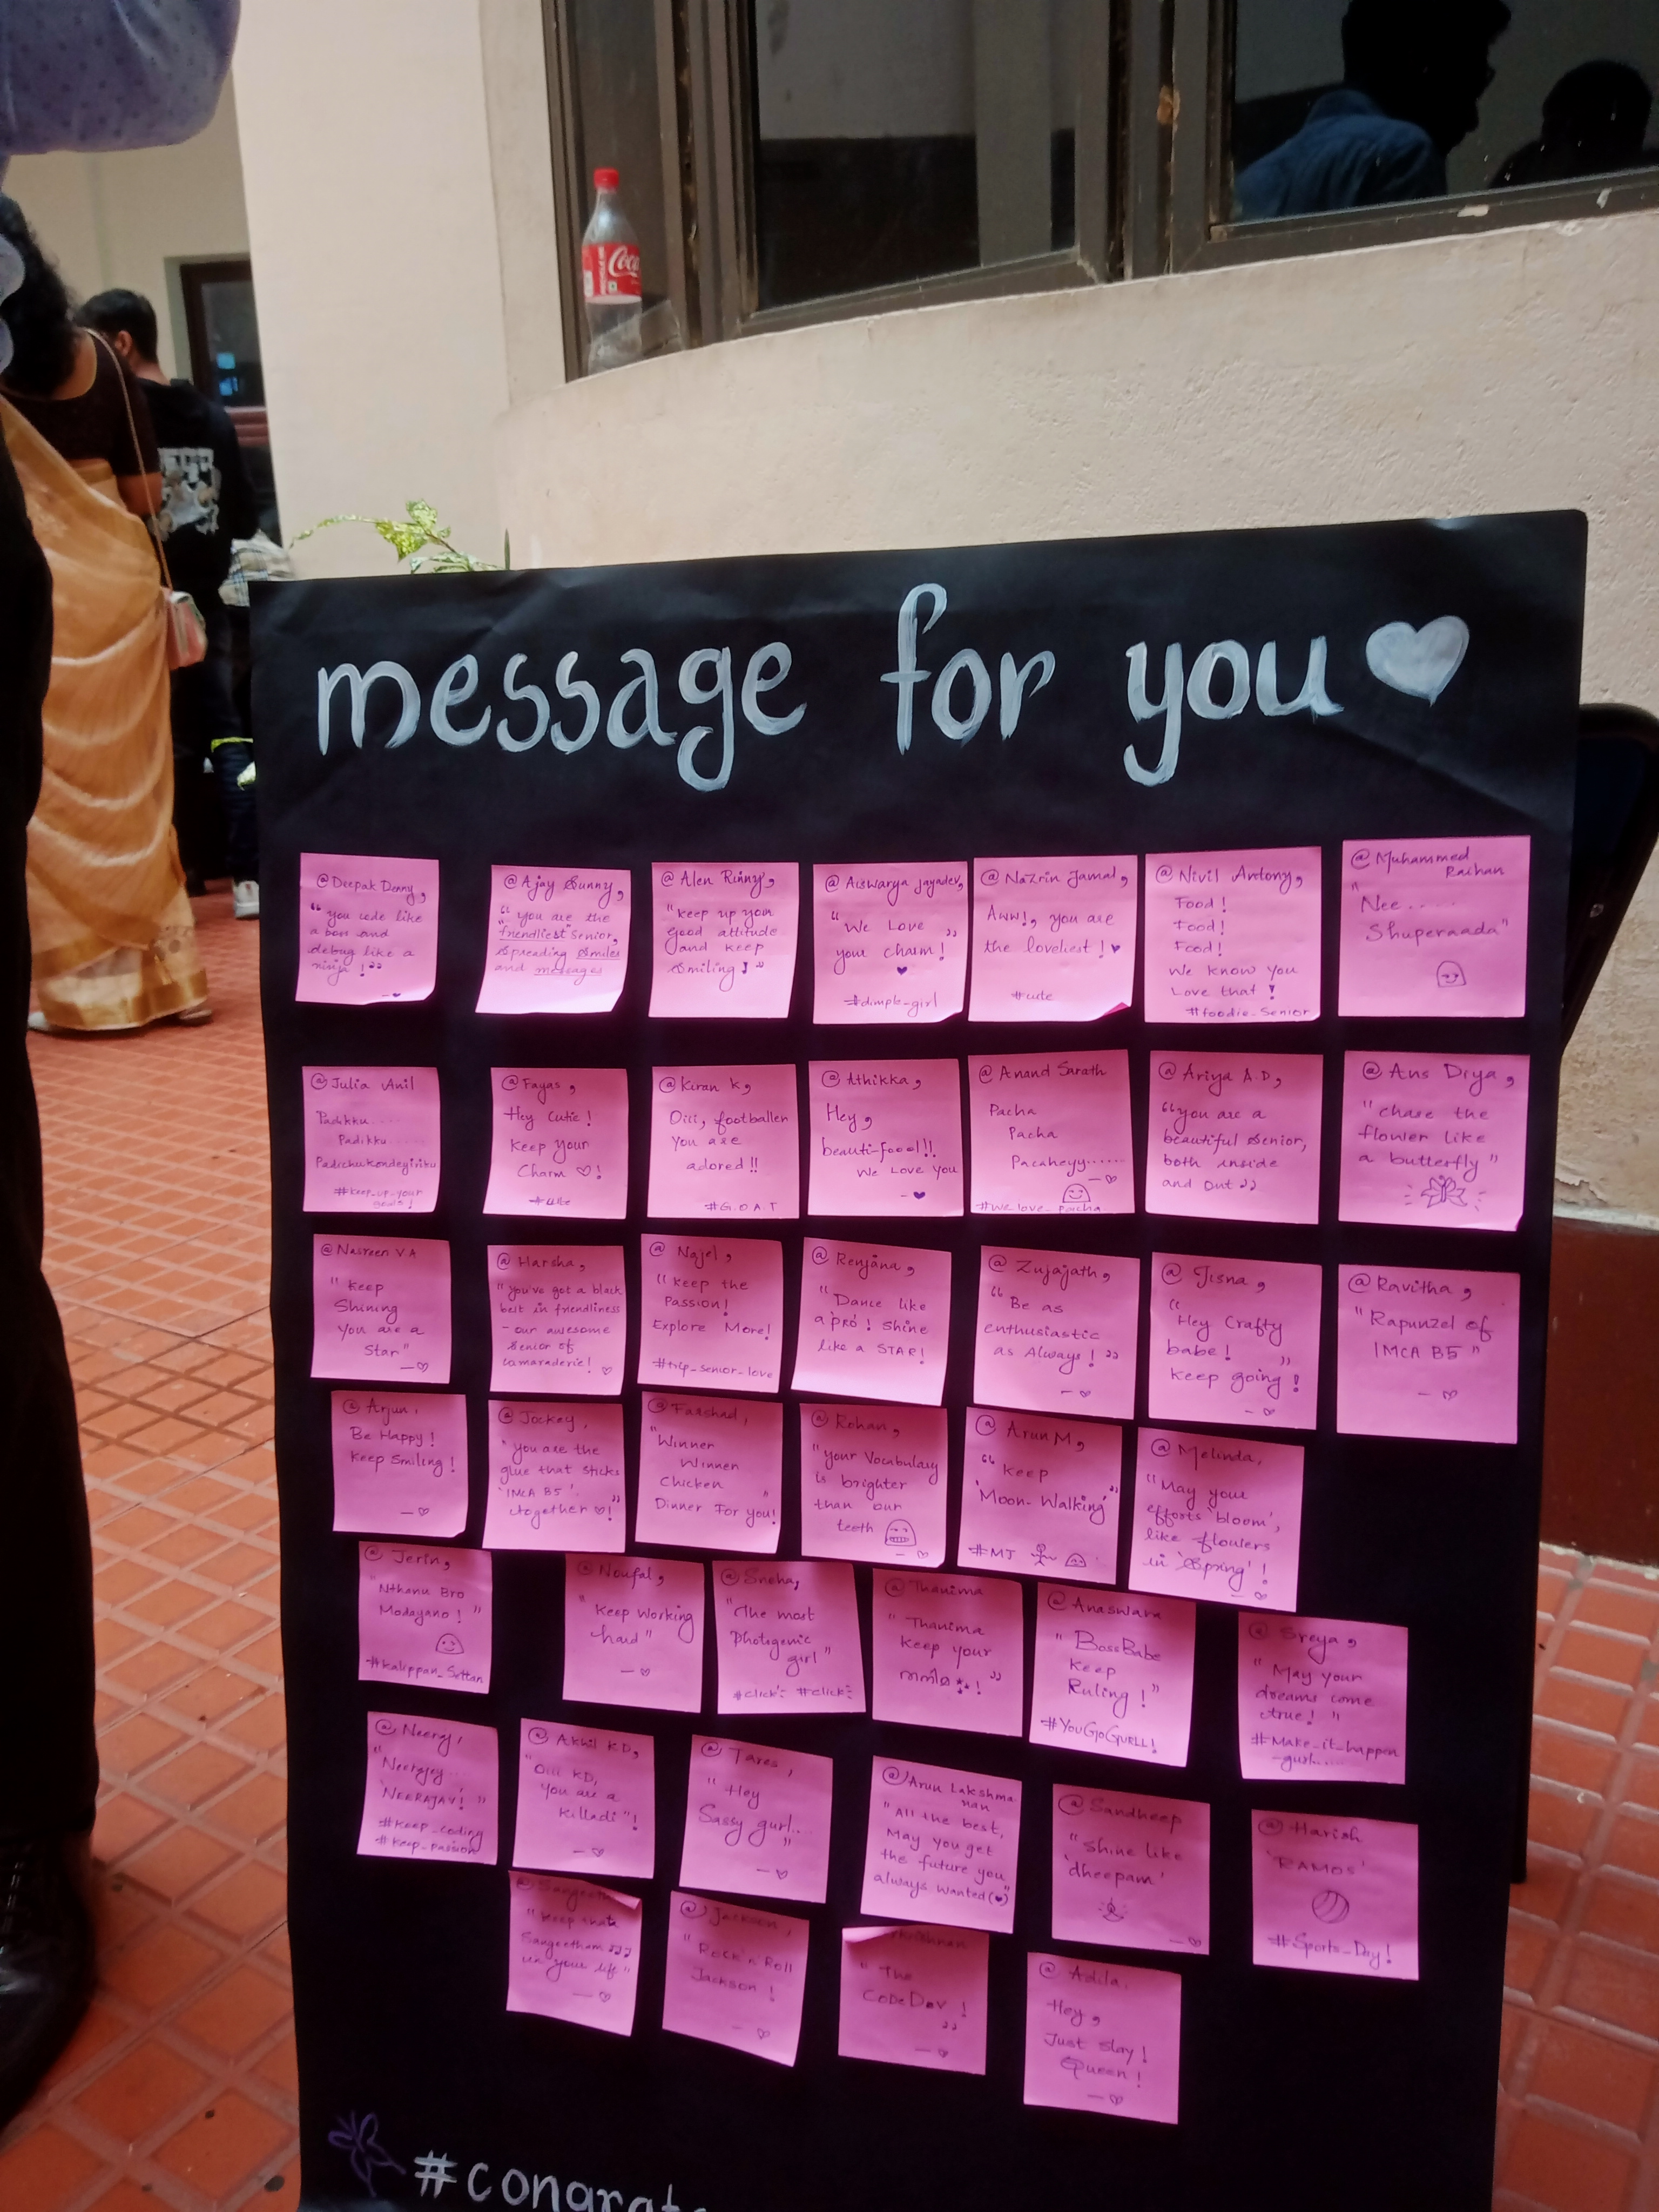 Coca
message for you
@Deepak Denny,
"you code like
a boss and
debug like a
ninja !"
@Ajay Sunny,
"you are the
"friendliest" senior,
spreading smiles
and messages
@Alen Rinny,
"keep up your
good attitude
and keep
smiling ! "
@Aiswarya Jayadev,
"We Love
your charm! "
#dimple-girl
@Nazrin Jamal,
Aww!, you are
the loveliest !
#cute
@Nivil Antony,
Food !
Food!
Food!
We know you
Love that !
#foodie_Senior
@Muhammed
Raihan
"Nee.....
Shuperaada"
@Julia Anil
Padikku....
Padikku.....
Padichukondeyiriku
#keep_up_your
goals!
@Fayas,
Hey Cutie !
Keep your
Charm !
#cute
@Kiran K,
Oiii, footballer
you are
adored !!
#G.O.A.T
@Athikka,
Hey,
beauti-foool!!
We Love you
@Anand Sarath
Pacha
Pacha
Pacaheyy......
#we_love_pacha
@Ariya A.D,
"you are a
beautiful senior,
both inside
and out"
@Ans Diya,
"chase the
flower like
a butterfly"
@Nasreen V A
"Keep
Shining
You are a
Star"
@Harsha,
"you've got a black
belt in friendliness
- our awesome
senior of
camaraderie!
@Najel,
"keep the
Passion!
Explore More!
#trip_senior_love
@Renjana,
"Dance like
a 'pro' ! Shine
like a STAR!
@Zujajath,
"Be as
enthusiastic
as Always ! "
@Jisna,
"Hey Crafty
babe !
Keep going ! "
@Ravitha,
"Rapunzel of
IMCA B5 "
@Arjun,
Be Happy !
Keep Smiling !
@Jockey,
"you are the
glue that sticks
'IMCA B5'
together !"
@Farshad,
"Winner
Winner
Chicken
Dinner For you! "
@Rohan,
"your Vocabulary
is brighter
than our
teeth
@Arun M,
"keep
'Moon-Walking' "
#MJ
@Melinda,
"May your
efforts 'bloom',
like flowers
in 'Spring' !
@Jerin,
"Nthonu Bro
Modayano ! "
#kalippan_Settan
@Noufal,
"Keep working
hard"
@Sneha,
"The most
Photogenic
girl "
#click #click
@Thanima
"Thanima
Keep your
തനിമ ! "
@Anaswara
"BossBabe
Keep
Ruling ! "
#YouGoGURLL!
@Sreya,
"May your
dreams come
true! "
#Make_it_happen
-gurl.....
@Neeraj,
"Neerajey...
'NEERAJAY! "
#keep_coding
#keep_passion
@Akhil KD,
"Oiii KD,
you are a
killadi "!
@Tares,
"Hey
Sassy gurl....
"
@Arun Lakshma
nan
"All the best,
May you get
the future you
always wanted"
@Sandheep
"Shine like
'dheepam'
@Harish
'RAMOS'
#Sports_Day!
"Keep that
Sangeetham
in your life"
@Jackson,
"Rock'n'Roll
Jackson !
"The
CodeDev !
"
@Adila,
Hey,
Just slay!
Queen!
#congrat